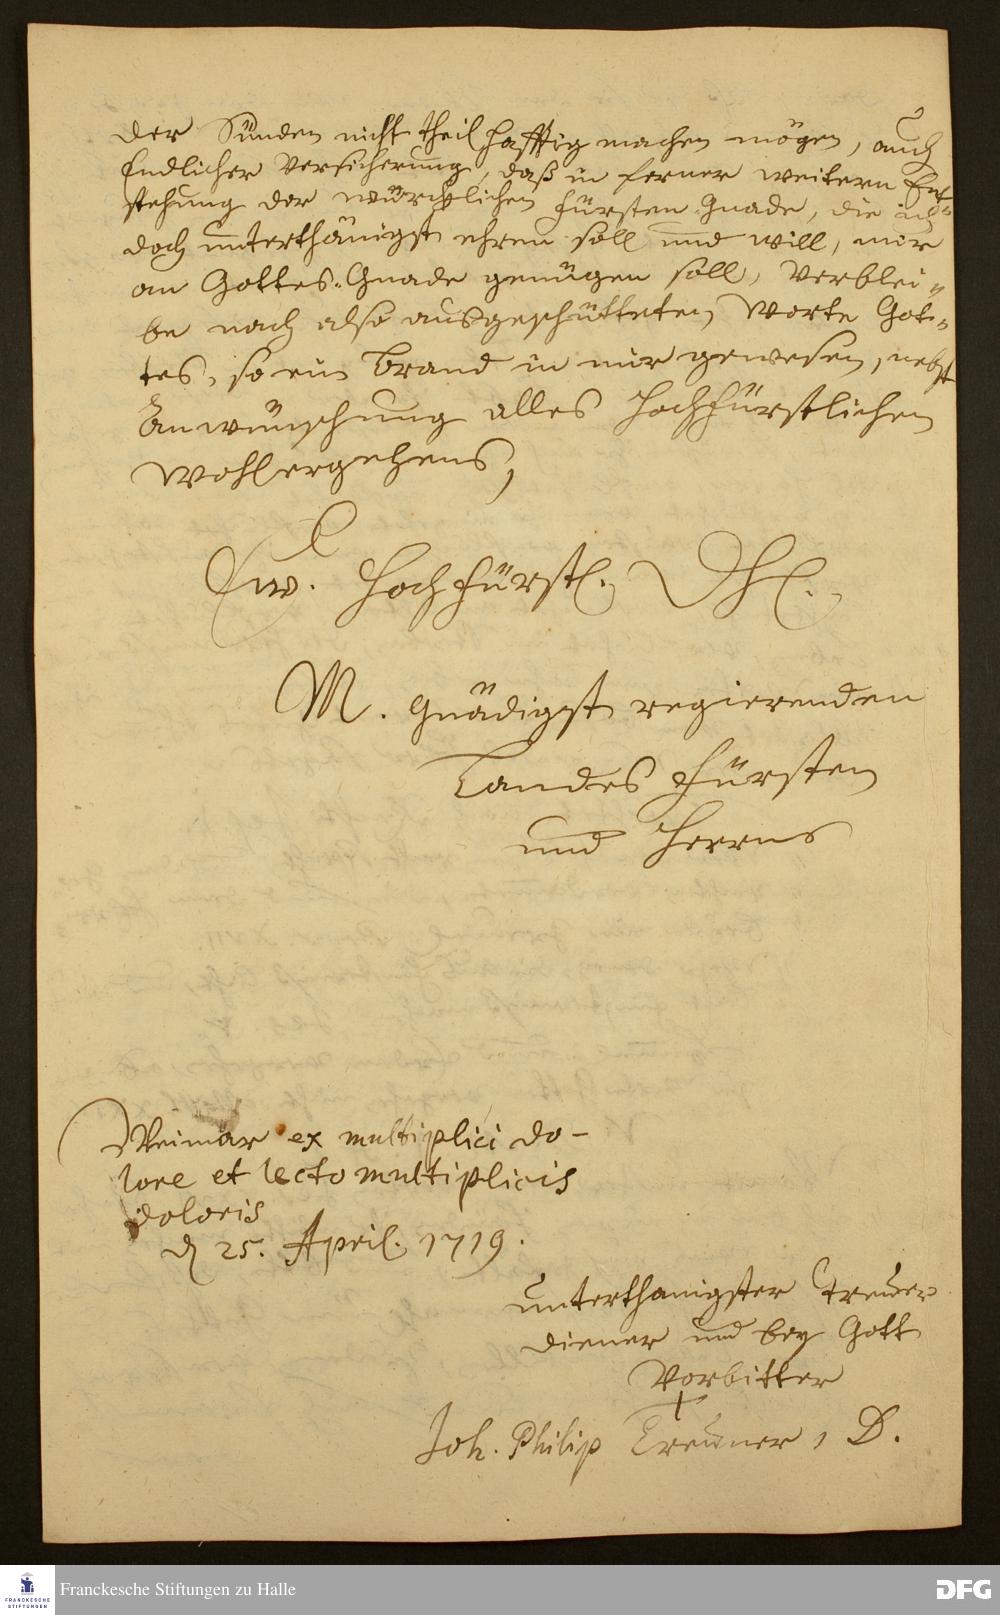 der Sünden nicht theilhafftig machen mögen, auch
Endlicher Versicherung, daß in ferner weitern Ent-
stehung der würcklichen Fürsten Gnade, die ich
doch unterthänigst ehren soll und will, mir
an Gottes-Gnade genügen soll, Verblei-
be nach also ausgeschütteten Worte Got-
tes, so ein Brand in mir gewesen, nebst
Anwünschung alles Hochfürstlichen
Wohlergehens,
Ew. Hochfürstl. Dhl.
M. Gnädigst regierenden
Landes Fürsten
und Herrns
Weimar ex multiplici do-
lore et lecto multiplicis
doloris
d 25. April. 1719.
unterthanigster Treuer
diener und bey Gott
Vorbitter
Joh. Philip Treuner, D.
Franckesche Stiftungen zu Halle
FRANCKESCHE
STIFTUNGEN
DFG